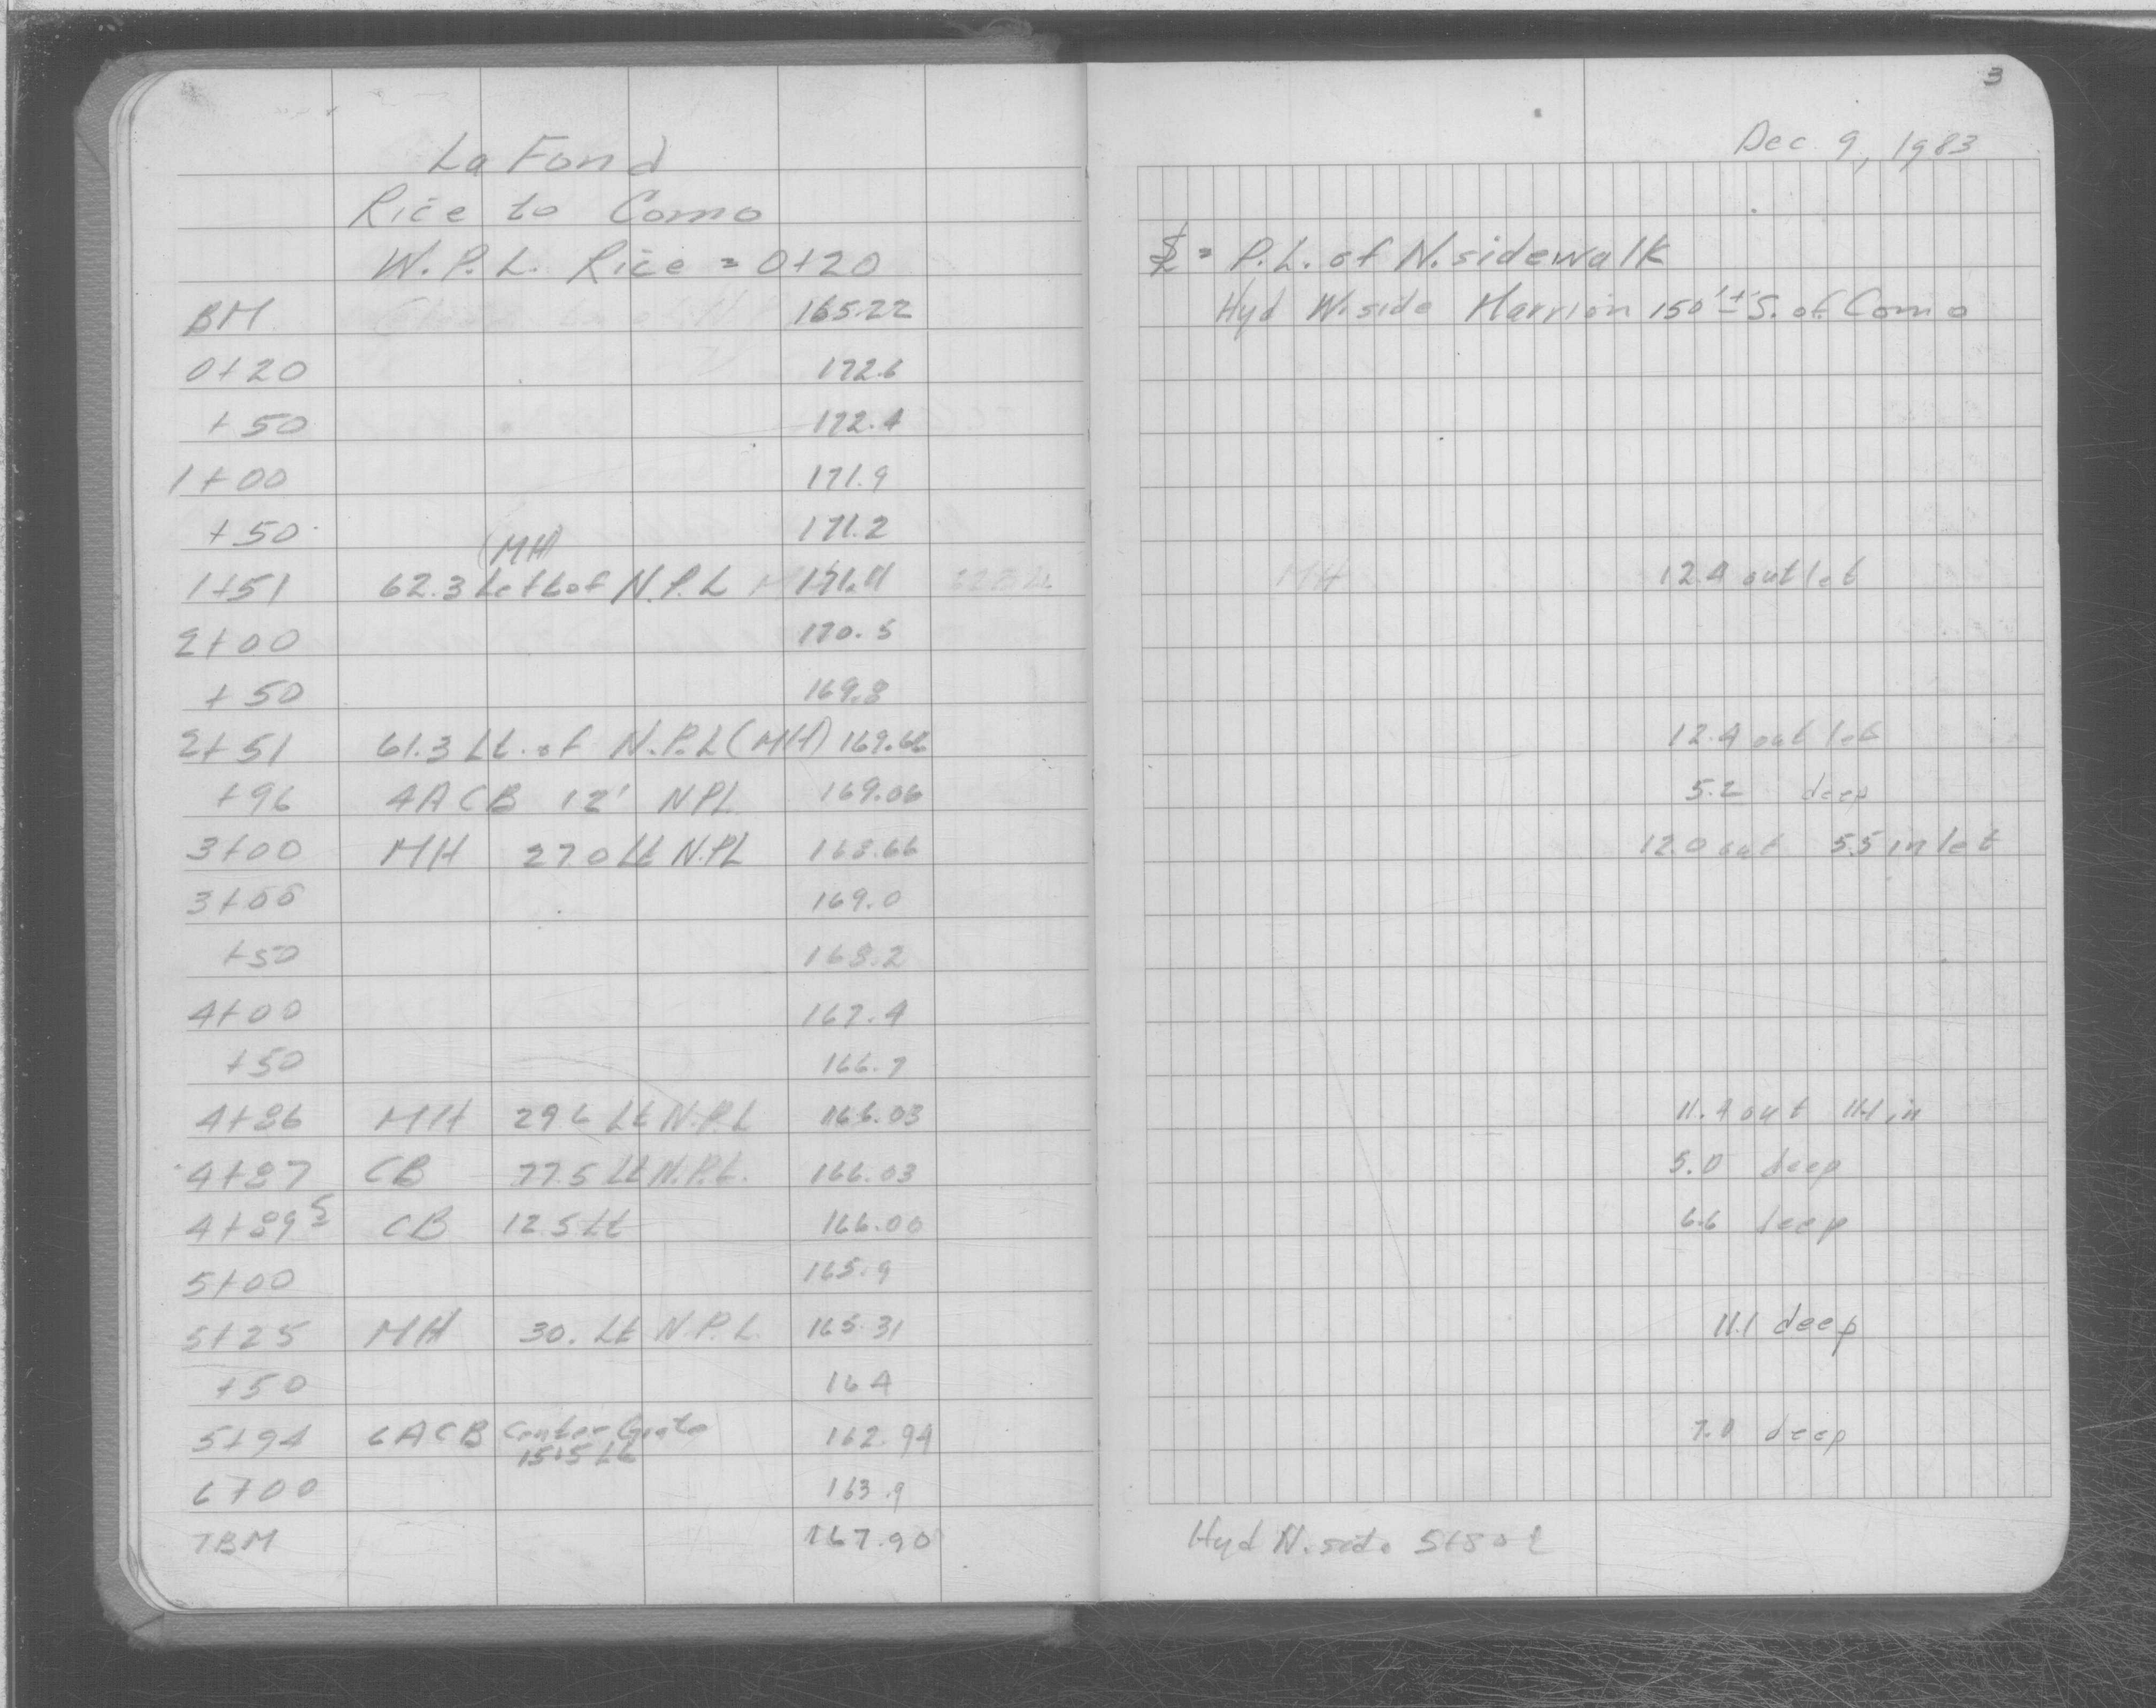 3
Dec 9, 1983
La Fond
Rice to Como
W.P.L. Rice = 0+20
= P.L. of N. sidewalk
BM 165.22 Hyd W. side Marrion 150'± S. of Como
0+20 172.6
+50 172.4
1+00 171.9
+50 171.2
(MH)
1+51 62.3 Left of N.P.L 171.11 MH 12.4 outlet
2+00 170.5
+50 169.8
2+51 61.3 Lt. of N.P.L (MH) 169.68 12.4 outlet
+96 4A CB 12' NPL 169.06 5.2 deep
3+00 MH 27.0 Lt N.PL 168.66 12.0 out 5.5 inlet
3+00 169.0
+50 168.2
4+00 167.4
+50 166.7
4+86 MH 29.6 Lt N.P.L 166.03 11.4 out 11.1 in
4+87 CB 77.5 Lt N.P.L. 166.03 5.0 deep
4+89 5 CB 12.5 Lt 166.00 6.6 deep
5+00 165.9
5+25 MH 30. Lt N.P.L. 165.31 11.1 deep
+50 164
5+94 6A CB Center Grate 162.94 7.0 deep
15.5 Lt
6+00 163.9
TBM 167.90 Hyd N. side 5+80±